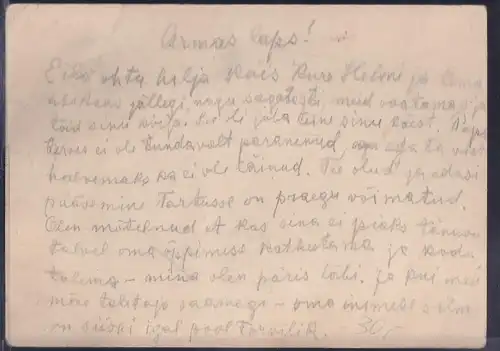 Armas laps!
Eile õhtu hilja käis Kure Helmi ja tema
abikaas jällegi, nagu sagedasti meid vaatama ja
tõid sinu kirja. See oli juba teine sinu käest. Papa
tervis ei ole tunduvalt paranenud, aga ega ta vist
halvemaks ka ei ole läinud. Tee olud ja edasi
pääsemine Tartusse on praegu võimatud.
Olen mõtelnud et kas sina ei peaks tänavu
talvel oma õppimise katkestama ja koju
tulema - mina olen päris tõbi. ja kui meie
mõne talitaja saamegi - oma inimese silm
on siiski igal pool tarvilik. 30,-